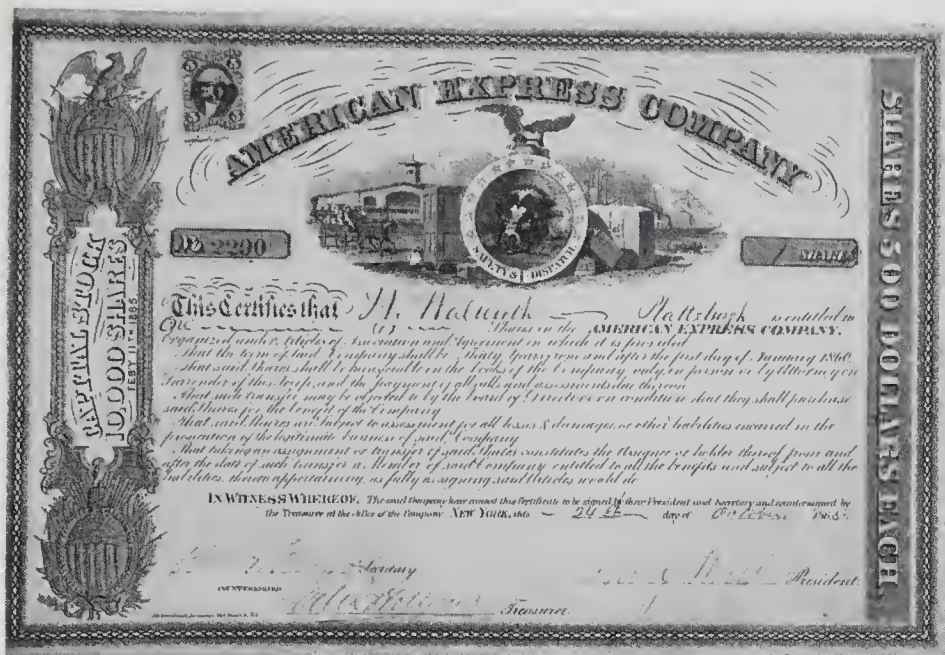 AMERICAN EXPRESS COMPANY
SHARES 500 DOLLARS EACH
CAPITAL STOCK
10,000 SHARES
FEBY 11TH 1865
No 2290
1 SHARES
SAFETY & DISPATCH
This Certifies that H. Plattsburgh is entitled to
One (1) Shares in the AMERICAN EXPRESS COMPANY.
Organized under Articles of Association and Agreement in which it is provided
That the term of said Company shall be Thirty Years from and after the first day of January 1860.
That said Shares shall be transferable on the books of the Company only, in person or by Attorney on
Surrender of this Certificate and the payment of all calls and assessments due thereon
That such transfer may be objected to by the board of Directors on condition that they shall purchase
said Shares for the benefit of the Company
That said Shares are subject to assessment for all losses & damages or other liabilities incurred in the
prosecution of the legitimate business of said Company
That taking an assignment or transfer of said Shares constitutes the Assignee or holder thereof from and
after the date of such transfer a Member of said Company entitled to all the benefits and subject to all the
liabilities thereto appertaining as fully as signing said Articles would do
IN WITNESS WHEREOF, The said Company have caused this Certificate to be signed by their President and Secretary and countersigned by
the Treasurer at the Office of the Company NEW YORK, this 24th day of October 1865
Secretary
President
COUNTERSIGNED
Treasurer